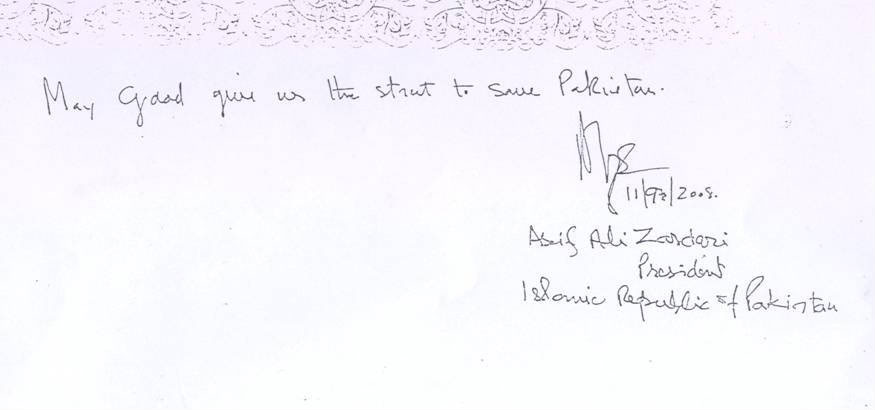 May Goad give us the strut to save Pakistan.
11/09/2008.
Asif Ali Zardari
President
Islamic Republic of Pakistan